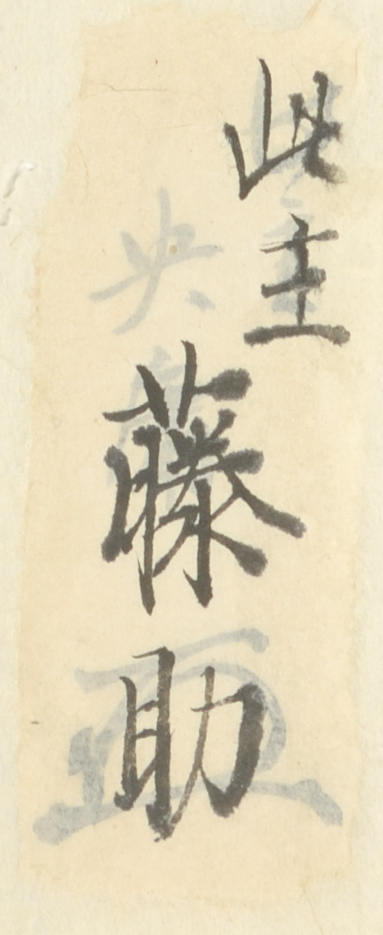 此主
藤助